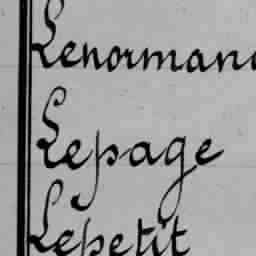 Lenormand
Lepage
Lepetit